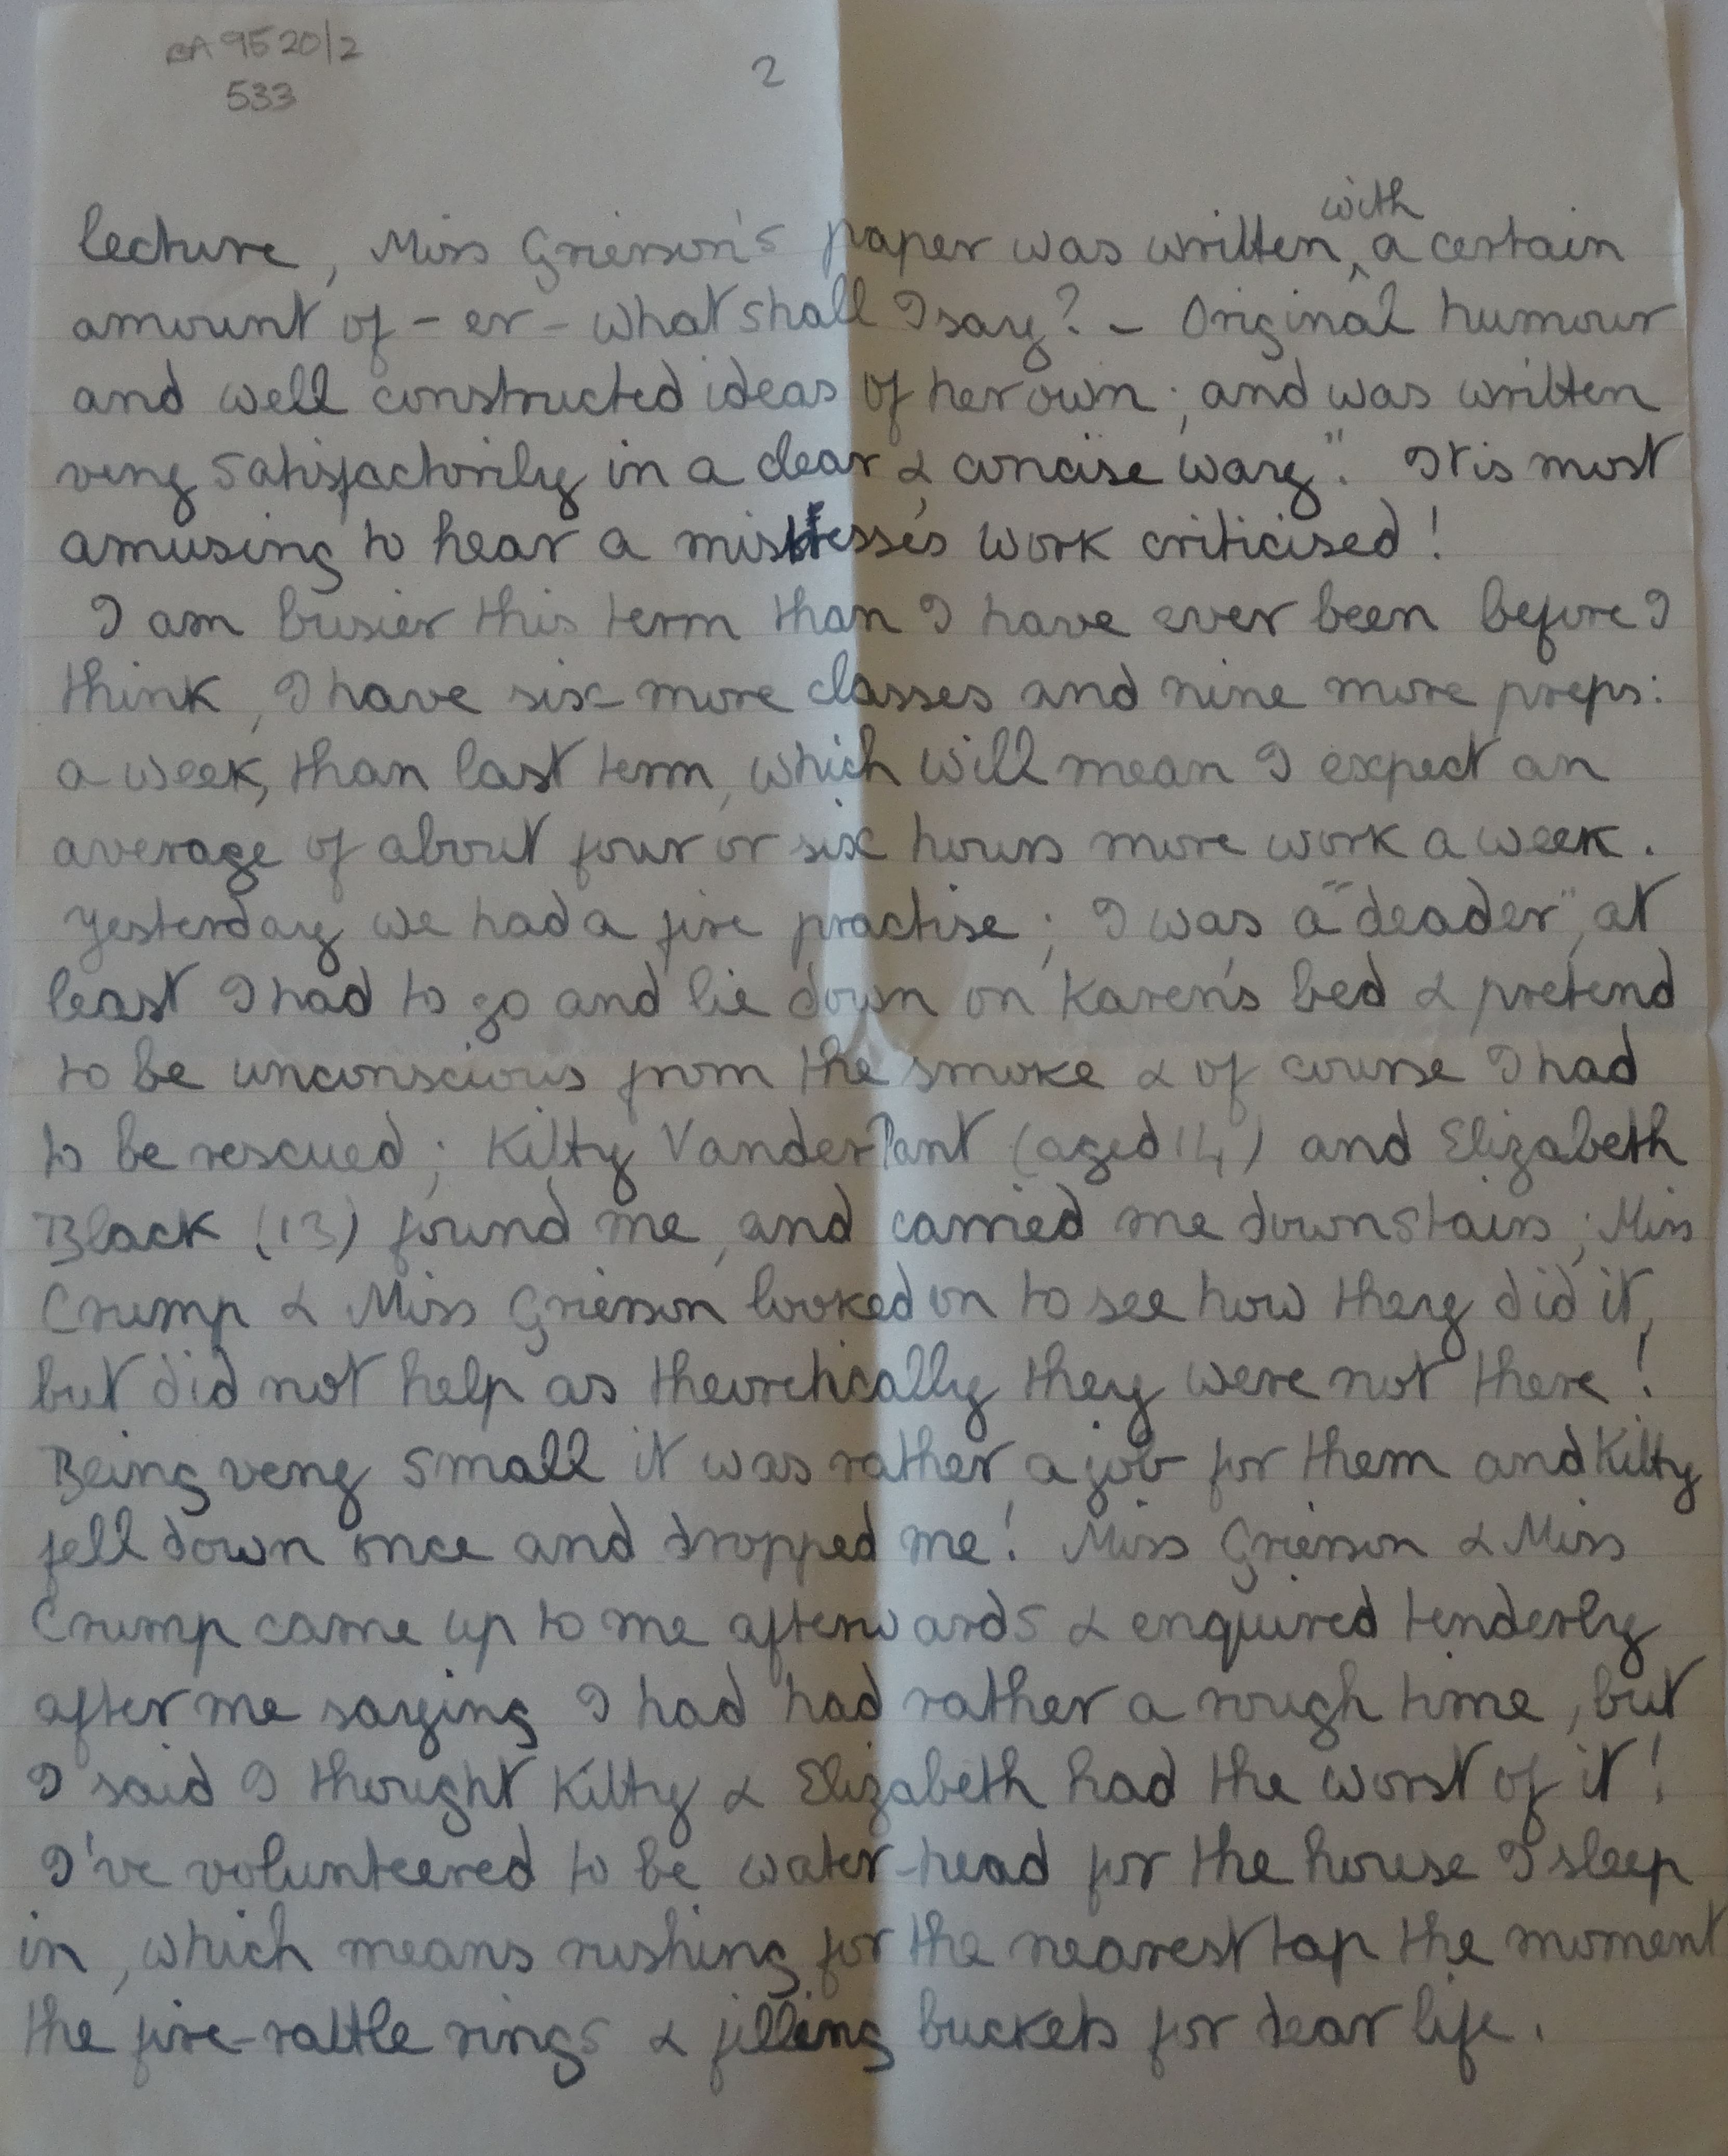 BA 9520/2
533
2
lecture, Miss Grierson's paper was written ^with a certain
amount of - er - what shall I say? - Original humour
and well constructed ideas of her own; and was written
very satisfactorily in a clear & concise way". It is most
amusing to hear a mistresse's work criticised!
I am busier this term than I have ever been before I
think, I have six more classes and nine more preps:
a week, than last term, which will mean I expect an
average of about four or six hours more work a week.
Yesterday we had a fire practise; I was a "deader", at
least I had to go and lie down on Karen's bed & pretend
to be unconscious from the smoke & of course I had
to be rescued; Kitty VanderPant (aged 14) and Elizabeth
Black (13) found me, and carried me downstairs; Miss
Crump & Miss Grierson looked on to see how they did it,
but did not help as theoretically they were not there!
Being very small it was rather a job for them and Kitty
fell down once and dropped me! Miss Grierson & Miss
Crump came up to me afterwards & enquired tenderly
after me saying I had had rather a rough time, but
I said I thought Kitty & Elizabeth had the worst of it!
I've volunteered to be water-head for the house I sleep
in, which means rushing for the nearest tap the moment
the fire-rattle rings & filling buckets for dear life.